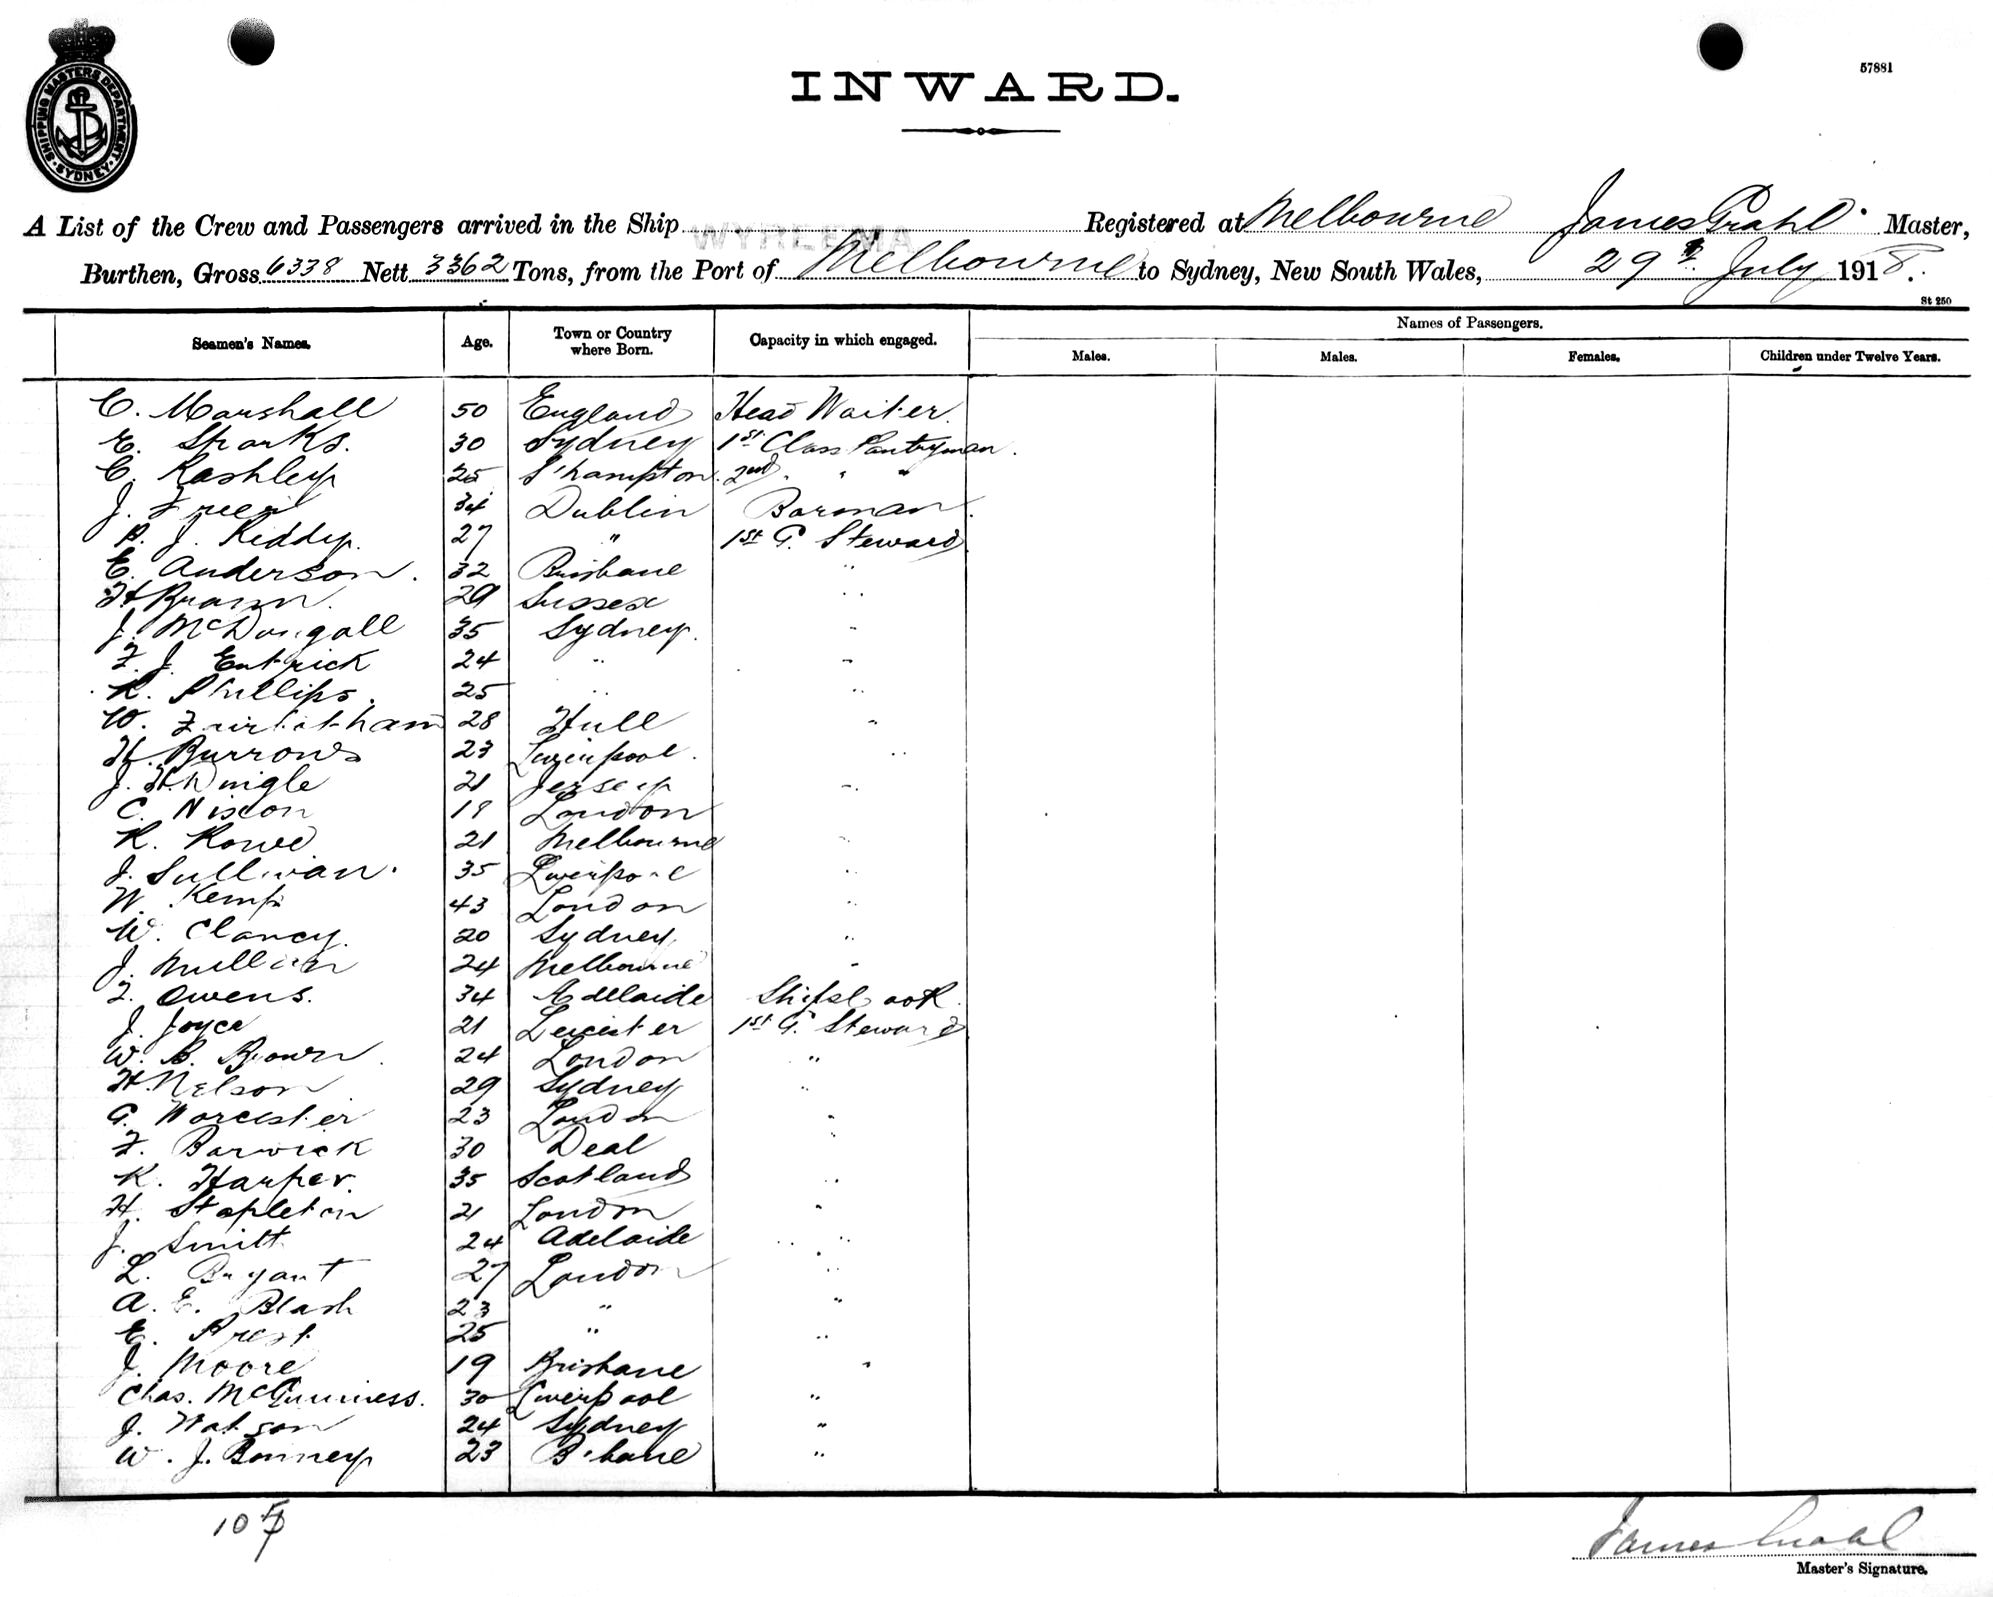 SHIPPING MASTERS DEPARTMENT · SYDNEY ·
57881
INWARD.
A List of the Crew and Passengers arrived in the Ship WYREEMA Registered at Melbourne James Grahl Master,
Burthen, Gross 6338 Nett 3362 Tons, from the Port of Melbourne to Sydney, New South Wales, 29th July 1918.
St 250
Seamen's Names. Age. Town or Country where Born. Capacity in which engaged. Names of Passengers.
Males. Males. Females. Children under Twelve Years.
C. Marshall 50 England Head Waiter.
E. Sparks. 30 Sydney 1st Class Pantryman.
C. Lashley 25 S'hampton. 2nd " " "
J. 34 Dublin Barman.
P. J. Kiddy. 27 " 1st G. Steward
E. Anderson. 32 Brisbane "
H Brown. 29 Sussex "
J. McDougall 35 Sydney. "
F. J. Entrick 24 " "
R. Phillips. 25 " "
W. 28 Hull "
H. Burrows 23 Liverpool. "
J. H. Dingle 21 Jersey "
C. Nixon London "
R. Rowe 21 Melbourne "
J. Sullivan. 35 Liverpool "
W. Kemp 43 London "
W. Clancy. 20 Sydney "
J. Mullin 24 Melbourne "
F. Owens. 34 Adelaide Ships Cook.
J. Joyce 21 Leicester 1st G. Steward
W. B. Brown. 24 London "
H. Nelson 29 Sydney "
G. Worcester 23 London "
F. Barwick 30 Deal "
R. Harper. 35 Scotland "
H. Stapleton 21 London "
J. Smitt 24 Adelaide "
L. Bryant 27 London "
A. E. Blash 23 " "
E. Prest. 25 " "
J. Moore 19 Brisbane "
Chas. McGuinness. 30 Liverpool "
J. Watson 24 Sydney "
W. J. Bonney 23 B'bane "
James Grahl
Master's Signature.